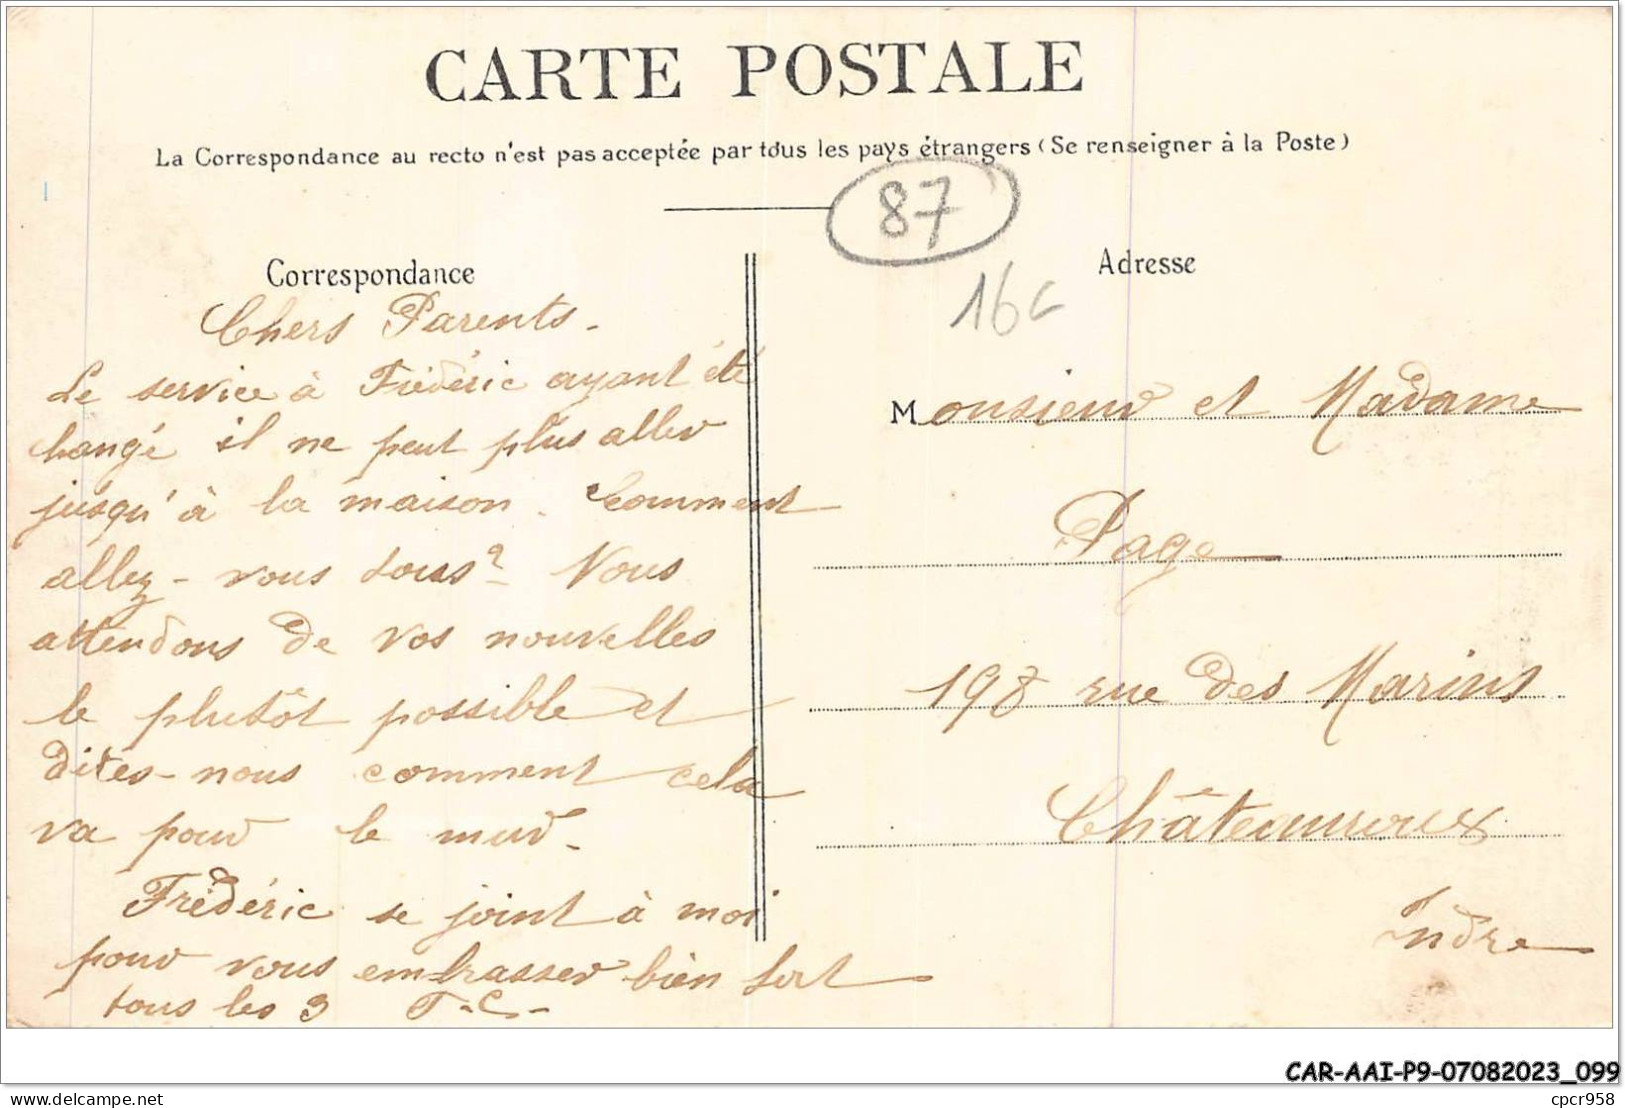 CARTE POSTALE
La Correspondance au recto n'est pas acceptée par tous les pays étrangers (Se renseigner à la Poste)
87
16c
Correspondance
Adresse
Chers Parents.
Le service à Frédéric ayant été
changé il ne peut plus aller
jusqu'à la maison. Comment
allez-vous tous? Nous
attendons de vos nouvelles
le plutôt possible et
dites-nous comment cela
va pour le mur.
Frédéric se joint à moi
pour vous embrasser bien fort
tous les 3 F.C.
Monsieur et Madame
Page
198 rue des Marins
Châteauroux
Indre
CAR-AAI-P9-07082023_099
delcampe.net
cpcr958